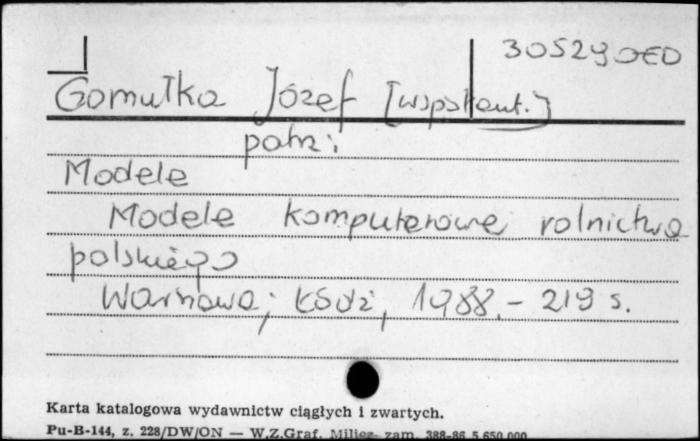 305290ED
Gomułka Józef [współaut.]
patrz:
Modele
Modele komputerowe rolnictwa
polskiego
Warszawa; Łódź, 1988.- 219 s.
Karta katalogowa wydawnictw ciągłych i zwartych.
Pu-B-144, z. 228/DW/ON — W.Z.Graf. Milicz zam. 388-86 5.650.000